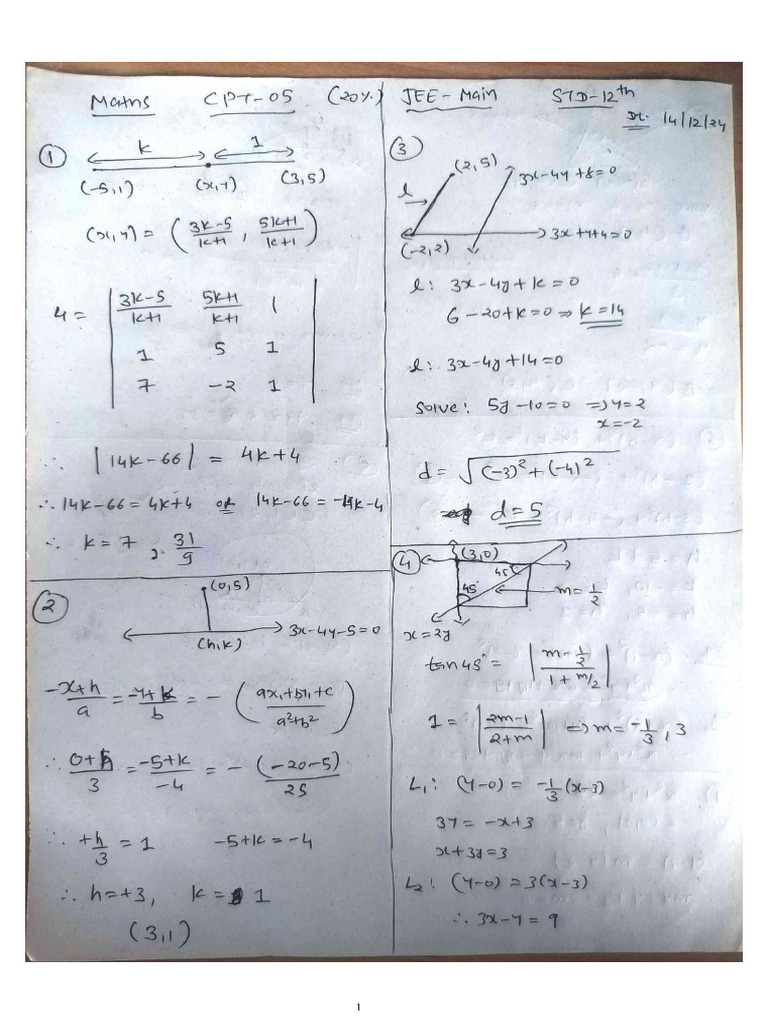 Maths CPT-05 (20%) JEE-Main STD-12th
Dt. 14/12/24
①
k 1
(-5,1) (x,y) (3,5)
(x,y) = ( (3k-5)/(k+1) , (5k+1)/(k+1) )
4 = | (3k-5)/(k+1) (5k+1)/(k+1) 1 |
1 5 1
7 -2 1
∴ |14k-66| = 4k+4
∴ 14k-66 = 4k+4 or 14k-66 = -4k-4
∴ k = 7 , 31/9
②
(0,5)
3x-4y-5=0
(h,k)
(-x+h)/a = (-y+k)/b = - ( (ax₁+by₁+c)/(a²+b²) )
∴ (0+h)/3 = (-5+k)/-4 = - (-20-5)/25
∴ +h/3 = 1 -5+k = -4
∴ h=+3, k = 1
(3,1)
③
(2,5) 3x-4y+8=0
l
3x+y+4=0
(-2,2)
l: 3x-4y+k=0
6-20+k=0 ⇒ k=14
l: 3x-4y+14=0
Solve: 5y-10=0 ⇒ y=2
x=-2
d = √((-3)²+(-4)²)
d=5
④
(3,0)
45
45°
m=1/2
x=2y
tan45° = | (m-1/2)/(1+m/2) |
1 = | (2m-1)/(2+m) | ⇒ m = -1/3 , 3
L₁: (y-0) = -1/3 (x-3)
3y = -x+3
x+3y=3
L₂: (y-0) = 3(x-3)
∴ 3x-y = 9
1